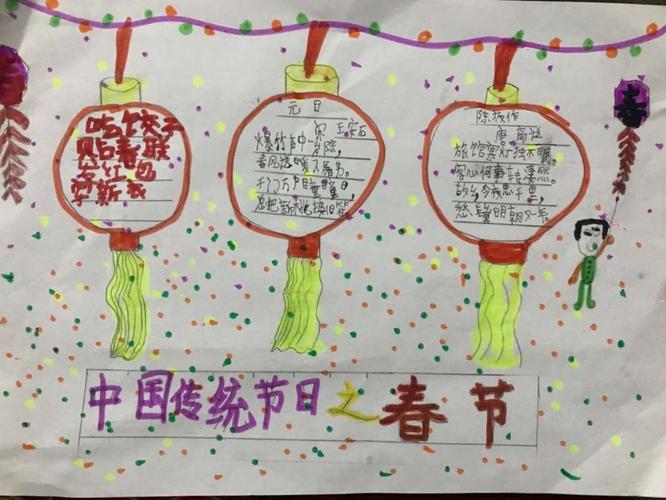 吃饺子
贴春联
红包
穿新衣
元日
宋 王安石
爆竹声中一岁除，
春风送暖入屠苏。
千门万户曈曈日，
总把新桃换旧符
除夜作
唐 高适
旅馆寒灯独不眠，
客心何事转凄然。
故乡今夜思千里，
愁鬓明朝又一年
春
中国传统节日之春节